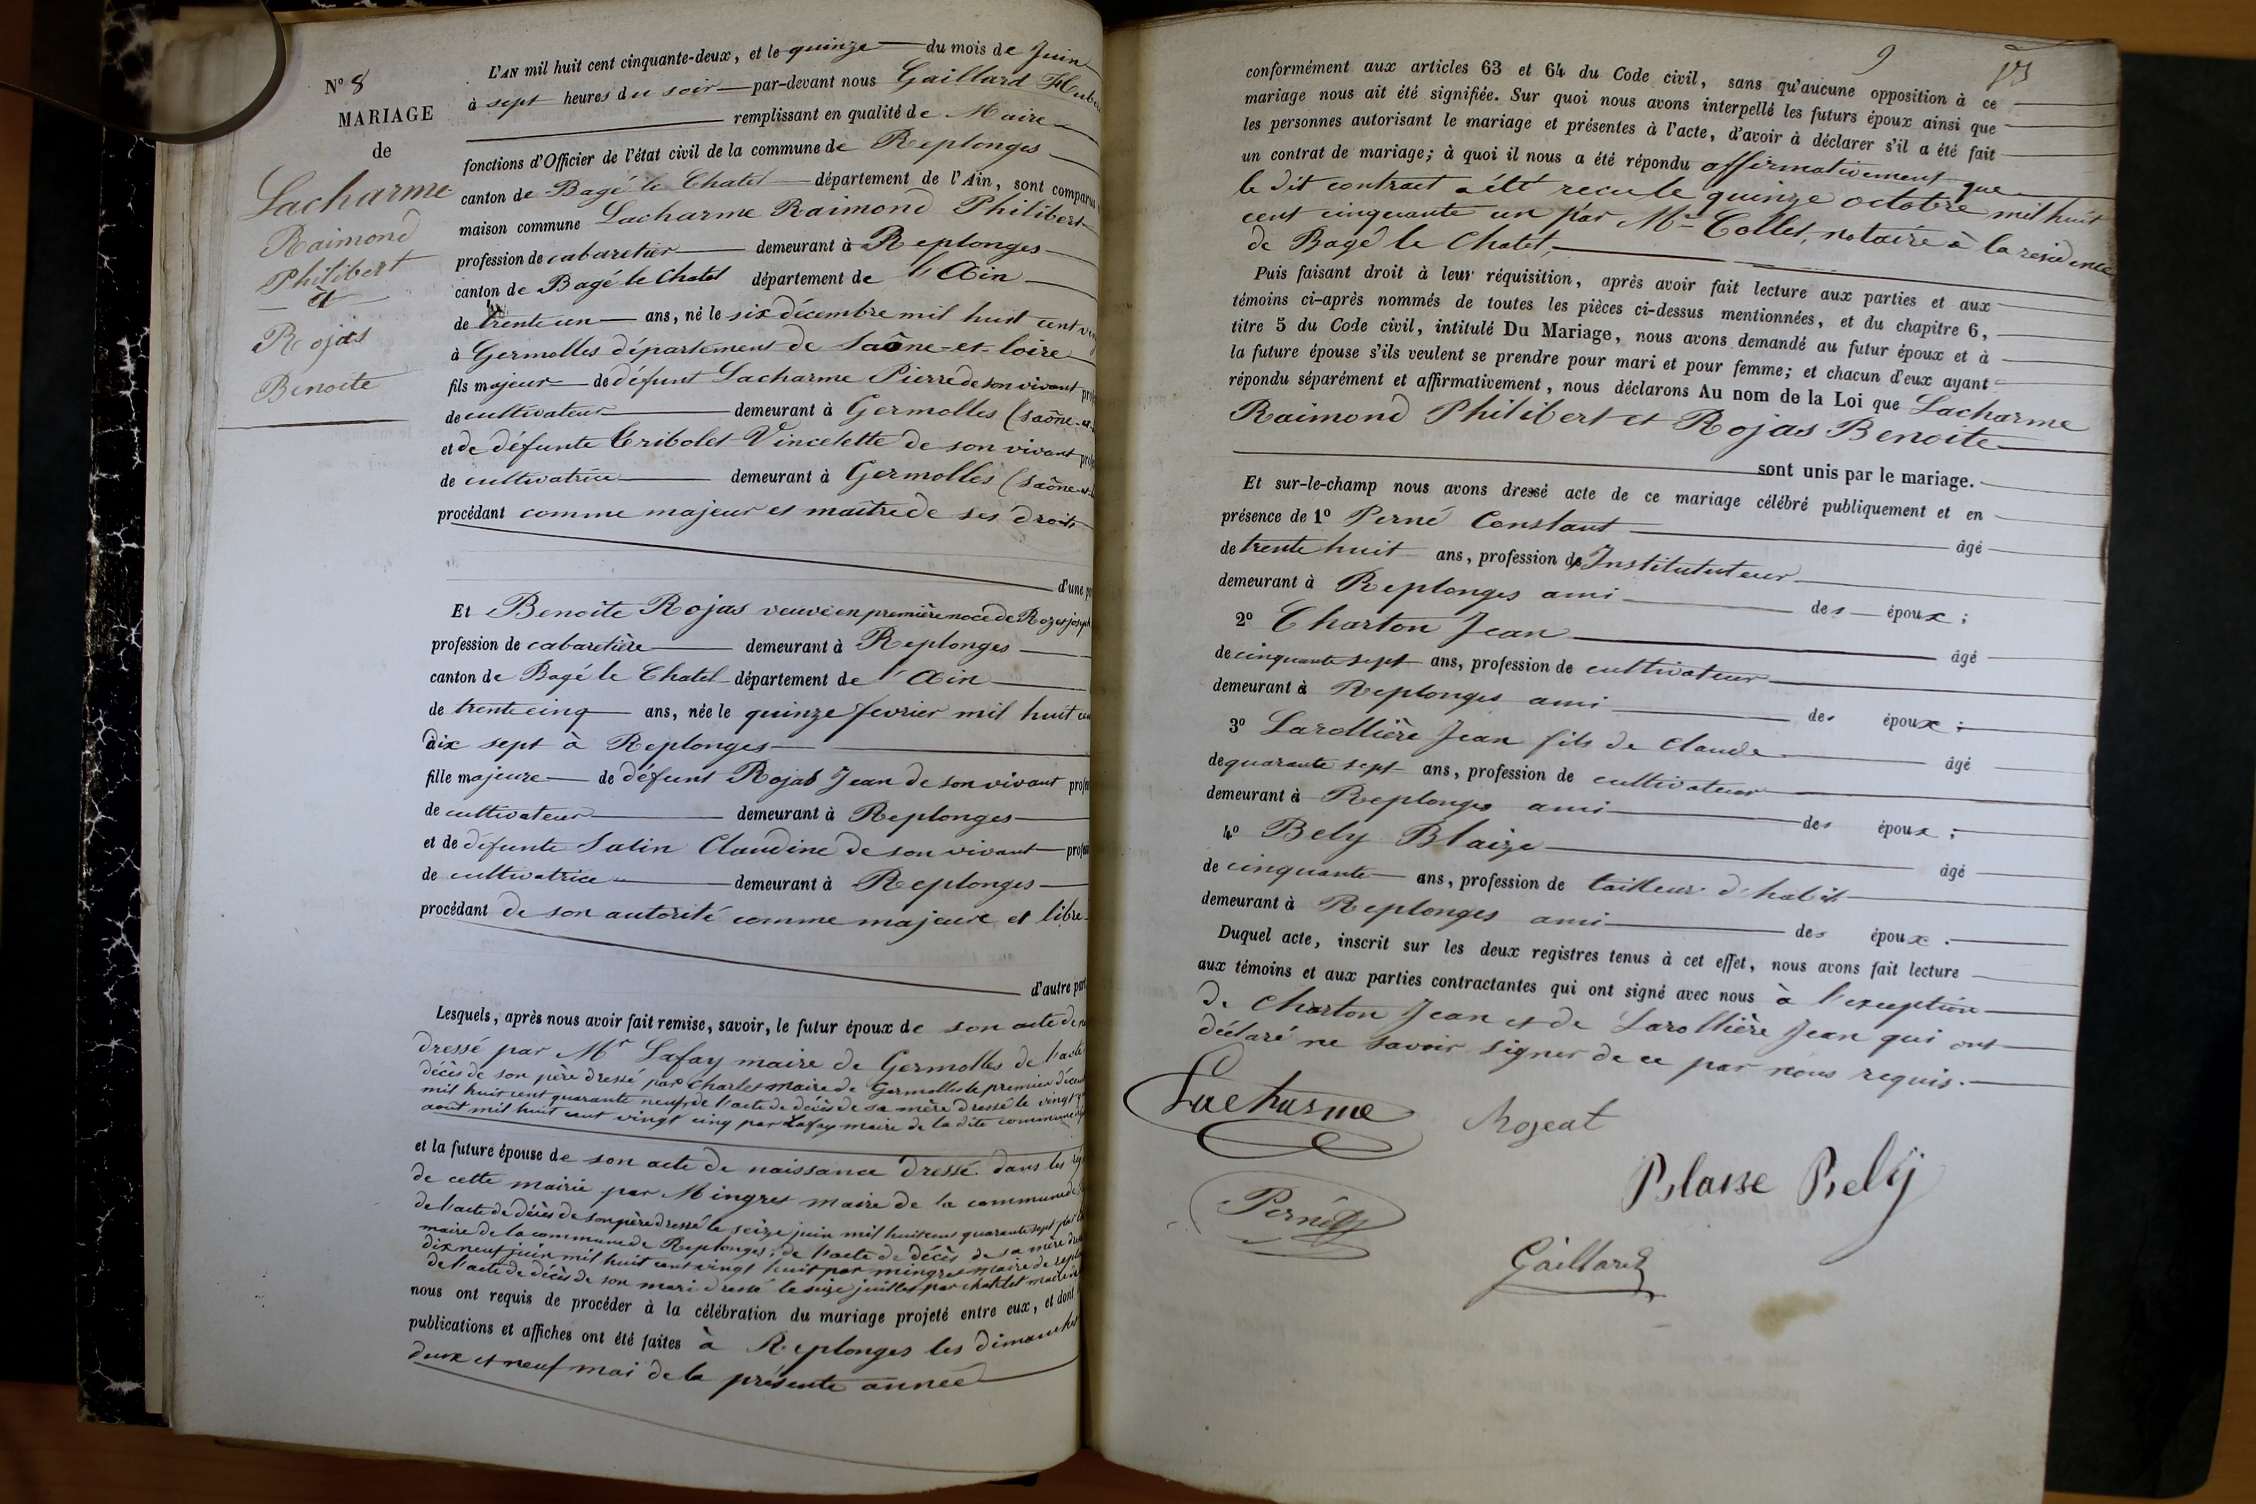 N° 8
MARIAGE
de
Lacharme
Raimond
Philibert
et
Rojas
Benoite
L'AN mil huit cent cinquante-deux, et le quinze du mois de Juin
à sept heures du soir par-devant nous Gaillard
remplissant en qualité de Maire
fonctions d'Officier de l'état civil de la commune de Replonges
canton de Bagé le Chatel département de l'Ain, sont comparus
maison commune Lacharme Raimond Philibert
profession de cabaretier demeurant à Replonges
canton de Bagé le Chatel département de l'Ain
de trente un ans, né le six décembre mil huit cent
à Germolles département de Saône-et-loire
fils majeur de défunt Lacharme Pierre de son vivant
de cultivateur demeurant à Germolles (Saône-et-
et de défunte Tribolet Vincelette de son vivant
de cultivatrice demeurant à Germolles (Saône-et-
procédant comme majeur et maître de ses droits
d'une
Et Benoîte Rojas veuve en première noce de Rozer joseph
profession de cabaretière demeurant à Replonges
canton de Bagé le Chatel département de l'Ain
de trente cinq ans, née le quinze fevrier mil huit
dix sept à Replonges
fille majeure de défunt Rojas Jean de son vivant
de cultivateur demeurant à Replonges
et de défunte Salin Claudine de son vivant
de cultivatrice demeurant à Replonges
procédant de son autorité comme majeure et libre
d'autre part
Lesquels, après nous avoir fait remise, savoir, le futur époux de son acte de
dressé par Mr Lafay maire de Germolles de l'acte
décès de son père dressé par Charles maire de Germolles le premier
mil huit cent quarante neuf, de l'acte de décès de sa mère dressé le vingt
août mil huit cent vingt cinq par Lafay maire de la dite commune
et la future épouse de son acte de naissance dressé dans les
de cette mairie par Mingret maire de la commune de
de l'acte de décès de son père dressé le seize juin mil huit cent quarante sept par
maire de la commune de Replonges; de l'acte de décès de sa mère
dix neuf juin mil huit cent vingt huit par mingret maire de
de l'acte de décès de son mari dressé le onze juillet par chatelet maire
nous ont requis de procéder à la célébration du mariage projeté entre eux, et dont
publications et affiches ont été faites à Replonges les dimanches
deux et neuf mai de la présente année
9
conformément aux articles 63 et 64 du Code civil, sans qu'aucune opposition à ce
mariage nous ait été signifiée. Sur quoi nous avons interpellé les futurs époux ainsi que
les personnes autorisant le mariage et présentes à l'acte, d'avoir à déclarer s'il a été fait
un contrat de mariage; à quoi il nous a été répondu affirmativement que
le dit contract a été reçu le quinze octobre mil huit
cent cinquante un par Mr Collet, notaire à la residence
de Bagé le Chatel,
Puis faisant droit à leur réquisition, après avoir fait lecture aux parties et aux
témoins ci-après nommés de toutes les pièces ci-dessus mentionnées, et du chapitre 6,
titre 5 du Code civil, intitulé Du Mariage, nous avons demandé au futur époux et à
la future épouse s'ils veulent se prendre pour mari et pour femme; et chacun d'eux ayant
répondu séparément et affirmativement, nous déclarons Au nom de la Loi que Lacharme
Raimond Philibert et Rojas Benoite
sont unis par le mariage.
Et sur-le-champ nous avons dressé acte de ce mariage célébré publiquement et en
présence de 1° Perné Constant âgé
de trente huit ans, profession d'Instututeur
demeurant à Replonges ami des époux;
2° Charton Jean âgé
de cinquante sept ans, profession de cultivateur
demeurant à Replonges ami des époux;
3° Larollière Jean fils de Claude âgé
de quarante sept ans, profession de cultivateur
demeurant à Replonges ami des époux;
4° Bely Blaize âgé
de cinquante ans, profession de tailleur d'habit
demeurant à Replonges ami des époux.
Duquel acte, inscrit sur les deux registres tenus à cet effet, nous avons fait lecture
aux témoins et aux parties contractantes qui ont signé avec nous à l'exception
de Charton Jean et de Larollière Jean qui ont
déclaré ne savoir signer de ce par nous requis.
Lacharme
Rojeat
Blaise Bely
Perné
Gaillard